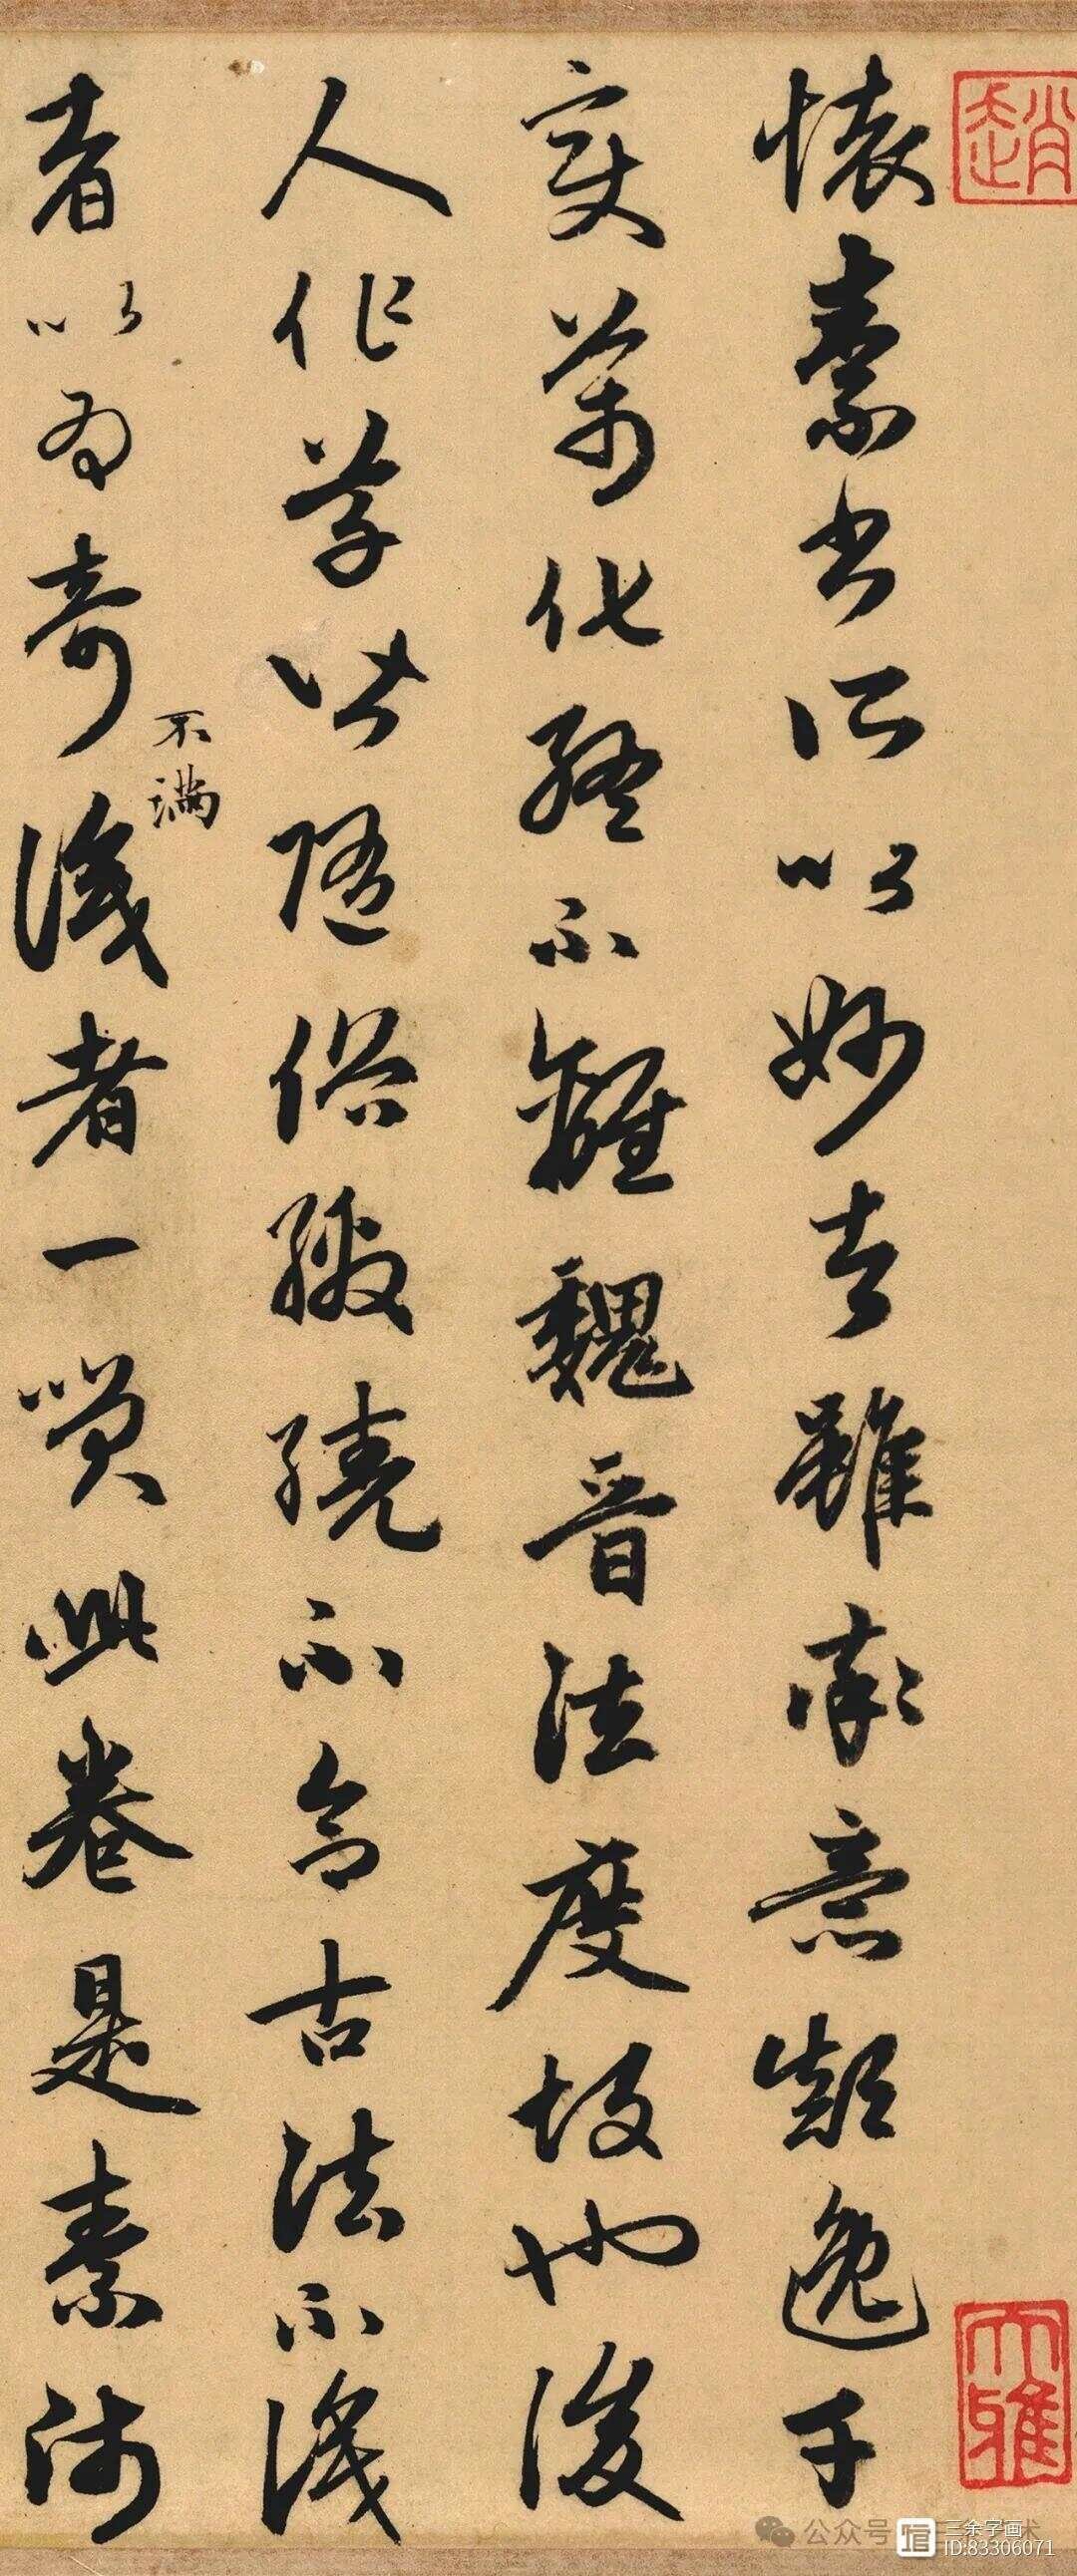 趙
大雅
懐素書所以妙者雖率意顛逸千
變萬化終不離魏晉法度故也後
人作草皆隨俗繳繞不合古法不識
者以為奇識者一笑此卷是素師
不滿
公众号
三余字画
ID:83306071